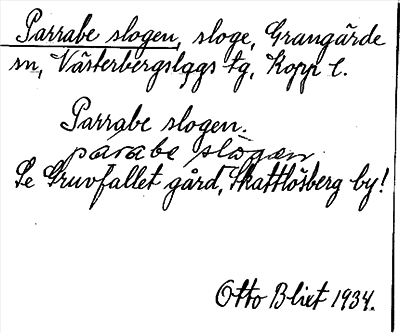 Parrabe slogen, sloge, Grangärde
sn, Västerbergslags tg, Kopp l.
Parrabe slogen.
párabe slògæn
Se Gruvfallet gård, Skattlösberg by!
Otto Blixt 1934.